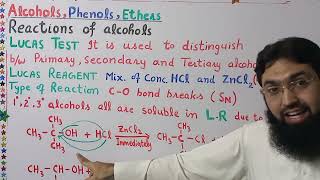 Alcohols, Phenols, Ethers
Reactions of alcohols
LUCAS TEST It is used to distinguish
b/w Primary, Secondary and Tertiary alcoho
LUCAS REAGENT Mix. of Conc. HCl and ZnCl2
Type of Reaction C-O bond breaks (SN)
1°, 2°, 3° alcohols all are soluble in L.R due to
CH3 CH3
CH3-C-OH + HCl ZnCl2 Immediately CH3-C-Cl
CH3 CH3
CH3-CH-OH +
CH3